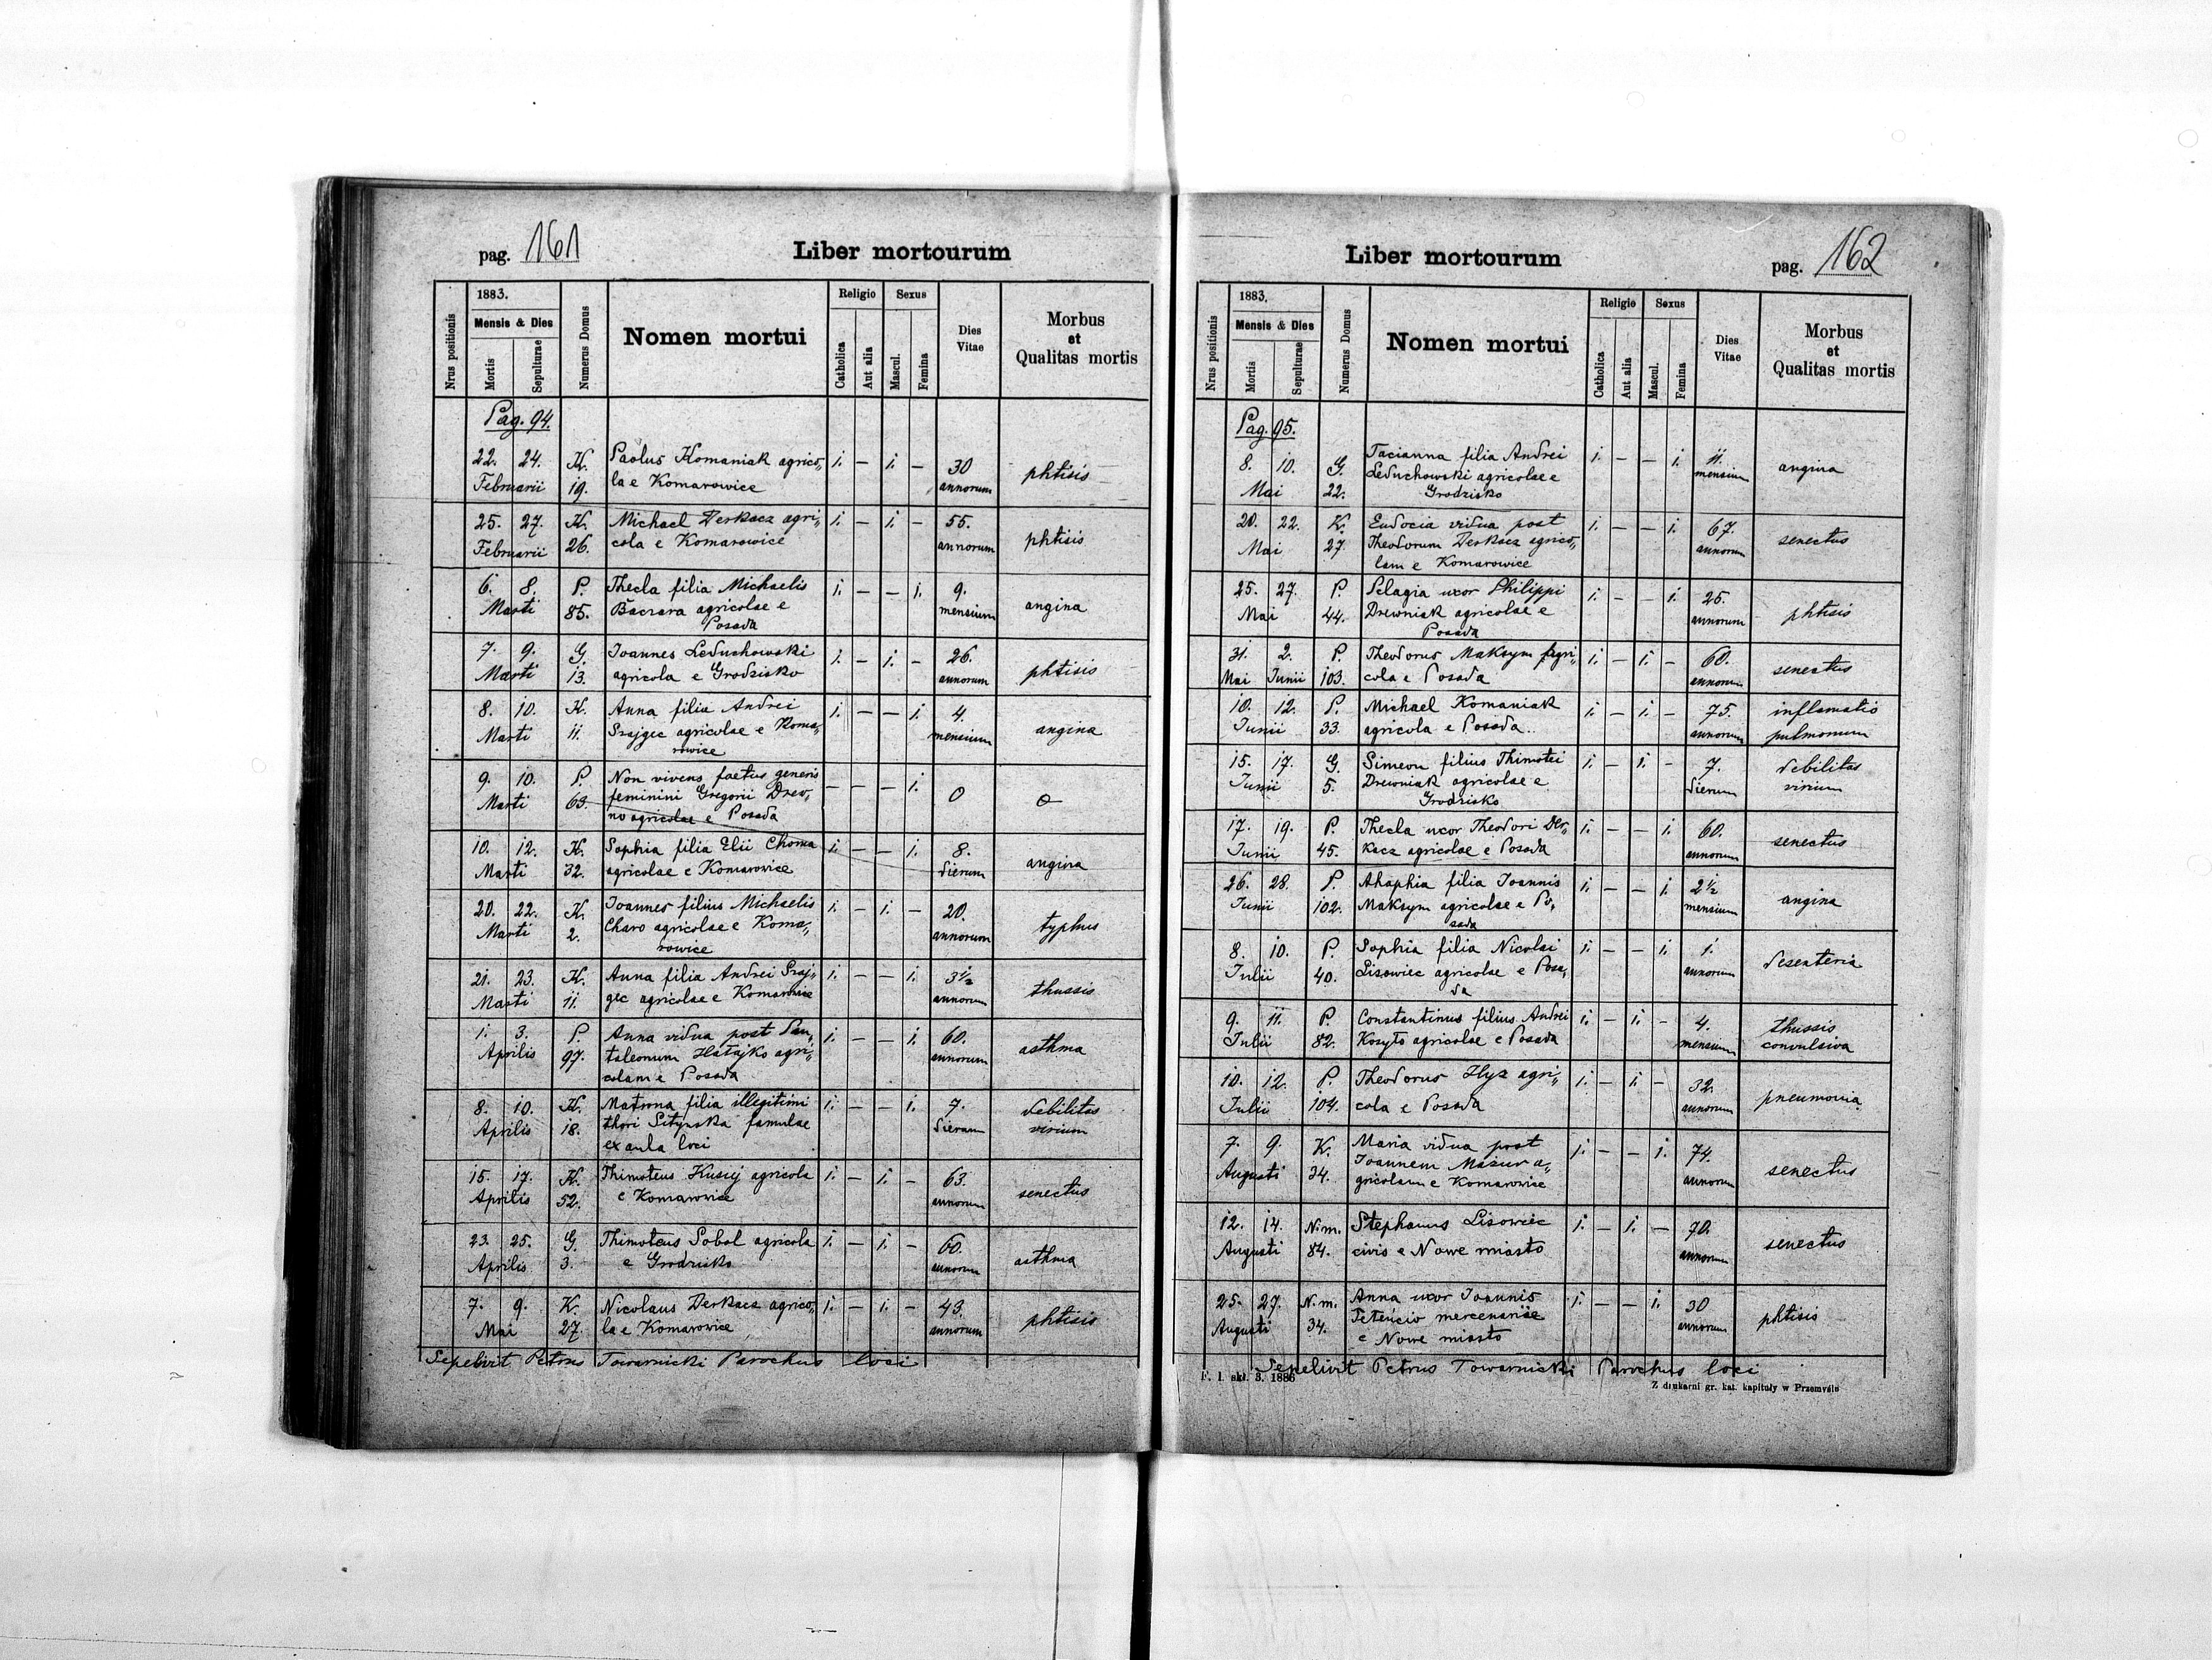 pag. 161
Liber mortourum
Nrus positionis
1883.
Mensis & Dies
Mortis
Sepulturae
Numerus Domus
Nomen mortui
Religio
Catholica
Aut alia
Sexus
Mascul.
Femina
Dies
Vitae
Morbus
et
Qualitas mortis
Pag. 94.
22. 24. K. Paolus Komaniak agrico„ 1. — 1. — 30 phtisis
Februarii 19. la e Komarowice annorum
25. 27. K. Michael Derkacz agri„ 1. — 1. — 55. phtisis
Februarii 26. cola e Komarowice annorum
6. 8. P. Thecla filia Michaelis 1. — — 1. 9. angina
Marti 85. Baczara agricolae e mensium
Posada
7. 9. G. Joannes Leduchowski 1. — 1. — 26. phtisis
Marti 13. agricola e Grodzisko annorum
8. 10. K. Anna filia Andrei 1. — — 1. 4. angina
Marti 11. Szajgec agricolae e Koma„ mensium
rowice
9. 10. P. Non vivens faetus generis — — — 1. 0 0
Marti 63. feminini Gregorii Drew„
no agricolae e Posada
10. 12. K. Sophia filia Elii Choma 1. — — 1. 8. angina
Marti 32. agricolae e Komarowice dierum
20. 22. K. Joannes filius Michaelis 1. — 1. — 20. typhus
Marti 2. Charo agricolae e Koma„ annorum
rowice
21. 23. K. Anna filia Andrei Szaj„ 1. — — 1. 3½ thussis
Marti 11. gec agricolae e Komarowice annorum
1. 3. P. Anna vidua post Pan„ 1. — — 1. 60. asthma
Aprilis 97. taleonum Hatajko agri„ annorum
colam e Posada
8. 10. K. Matrona filia illegitimi 1. — — 1. 7. debilitas
Aprilis 18. thori famulae dierum virium
ex aula loci
15. 17. K. Thimoteus Kusyj agricola 1. — 1. — 63. senectus
Aprilis 52. e Komarowice annorum
23. 25. G. Thimoteus Sobol agricola 1. — 1. — 60. asthma
Aprilis 3. e Grodzisko annorum
7. 9. K. Nicolaus Derkacz agrico„ 1. — 1. — 43. phtisis
Mai 27. la e Komarowice annorum
Sepelivit Petrus Towarnicki Parochus loci
Liber mortourum
pag. 162
Nrus positionis
1883.
Mensis & Dies
Mortis
Sepulturae
Numerus Domus
Nomen mortui
Religio
Catholica
Aut alia
Sexus
Mascul.
Femina
Dies
Vitae
Morbus
et
Qualitas mortis
Pag. 95.
8. 10. G. Tacianna filia Andrei 1. — — 1. 11. angina
Mai 22. Leduchowski agricolae e mensium
Grodzisko
20. 22. K. Eudocia vidua post 1. — — 1. 67. senectus
Mai 27. Theodorum Derkacz agrico„ annorum
lam e Komarowice
25. 27. P. Pelagia uxor Philippi 1. — — 1. 25. phtisis
Mai 44. Drewniak agricolae e annorum
Posada
31. 2. P. Theodorus Maksym agri„ 1. — 1. — 60. senectus
Mai Junii 103. cola e Posada annorum
10. 12. P. Michael Komaniak 1. — 1. — 75. inflamatio
Junii 33. agricola e Posada annorum pulmonum
15. 17. G. Simeon filius Thimotei 1. — 1. — 7. debilitas
Junii 5. Drewniak agricolae e dierum virium
Grodzisko
17. 19. P. Thecla uxor Theodori Der„ 1. — — 1. 60. senectus
Junii 45. kacz agricolae e Posada annorum
26. 28. P. Ahaphia filia Joannis 1. — — 1. 2½ angina
Junii 102. Maksym agricolae e Po„ mensium
sada
8. 10. P. Sophia filia Nicolai 1. — — 1. 1. desenteria
Julii 40. Lisowiec agricolae e Posa„ annorum
da
9. 11. P. Constantinus filius Andrei 1. — 1. — 4. thussis
Julii 82. Kosyto agricolae e Posada mensium convulsiva
10. 12. P. Theodorus Hyz agri„ 1. — 1. — 32. pneumonia
Julii 104. cola e Posada annorum
7. 9. K. Maria vidua post 1. — — 1. 74. senectus
Augusti 34. Joannem Mazur a„ annorum
gricolam e Komarowice
12. 14. N.m. Stephanus Lisowiec 1. — 1. — 70. senectus
Augusti 84. civis e Nowe miasto annorum
25. 27. N.m. Anna uxor Joannis 1. — — 1. 30 phtisis
Augusti 34. Petencio mercenariae annorum
e Nowe miasto
Sepelivit Petrus Towarnicki Parochus loci
F. l. skł. 3. 1888
Z drukarni gr. kat. kapituły w Przemyślu